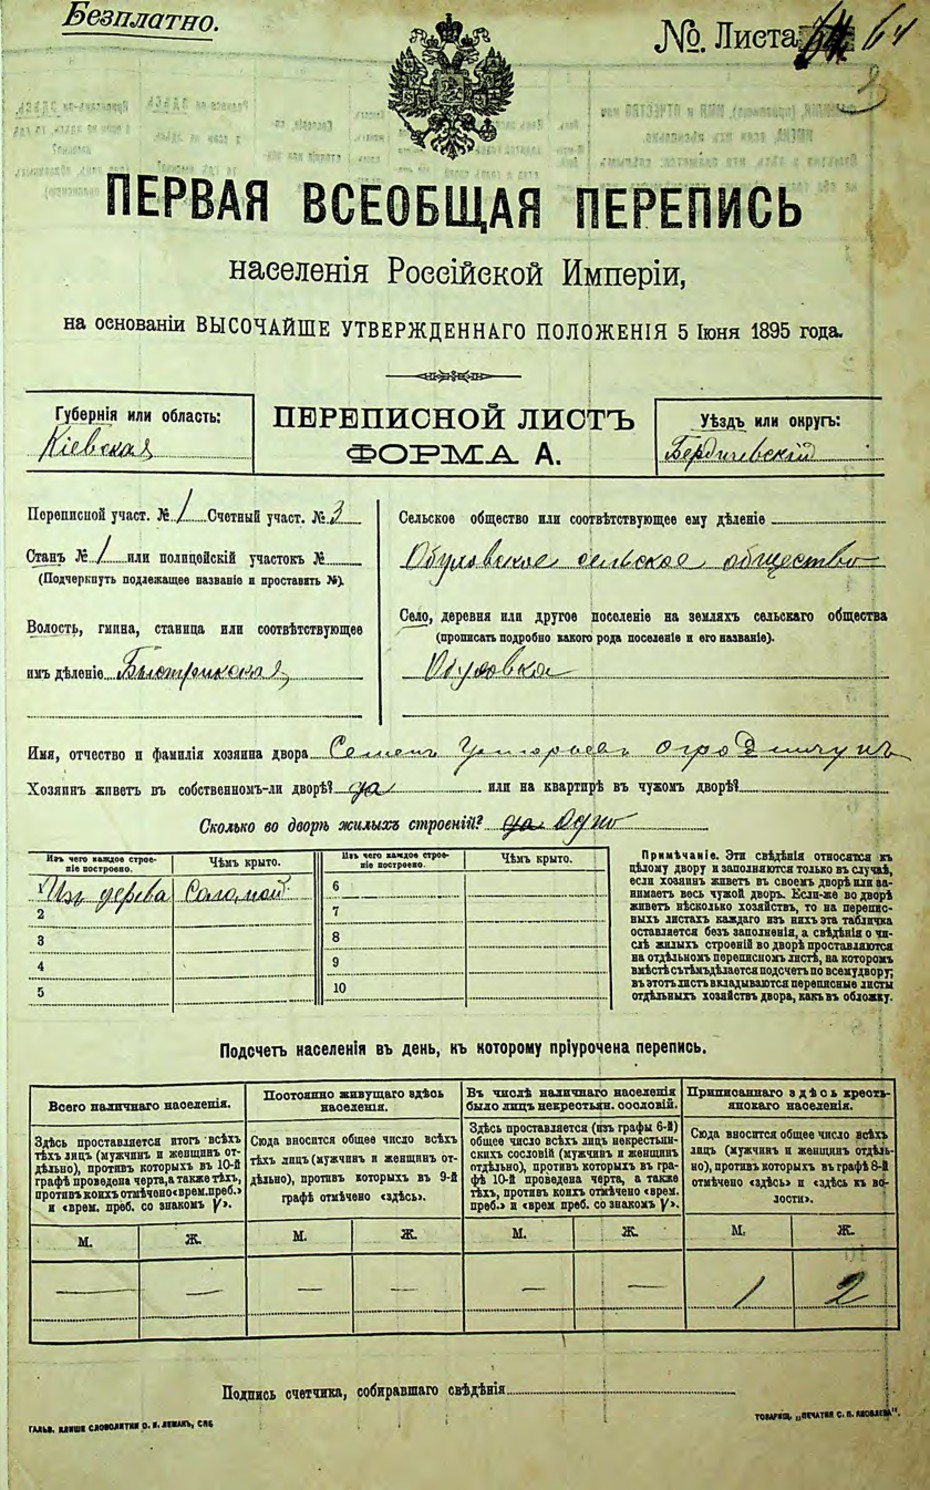 Безплатно.
№. Листа 64
ПЕРВАЯ ВСЕОБЩАЯ ПЕРЕПИСЬ
населенія Россійской Имперіи,
на основаніи ВЫСОЧАЙШЕ УТВЕРЖДЕННАГО ПОЛОЖЕНІЯ 5 Іюня 1895 года.
Губернія или область:
Кіевская
ПЕРЕПИСНОЙ ЛИСТЪ
ФОРМА А.
Уѣздъ или округъ:
Бердичевскій
Переписной участ. № 1 Счетный участ. № 3
Станъ № 1 или полицейскій участокъ №
(Подчеркнуть подлежащее названіе и проставить №).
Волость, гмина, станица или соотвѣтствующее
имъ дѣленіе Быстрикская
Сельское общество или соотвѣтствующее ему дѣленіе
Обуховское сельское общество
Село, деревня или другое поселеніе на земляхъ сельскаго общества
(прописать подробно какого рода поселеніе и его названіе).
Обуховка
Имя, отчество и фамилія хозяина двора Семенъ Григорьевъ Огродничукъ
Хозяинъ живетъ въ собственномъ-ли дворѣ? да или на квартирѣ въ чужомъ дворѣ?
Сколько во дворѣ жилыхъ строеній? да Одно
Изъ чего каждое строе-
ніе построено.
Чѣмъ крыто.
Изъ чего каждое строе-
ніе построено.
Чѣмъ крыто.
1 Изъ дерева Соломой
2
3
4
5
6
7
8
9
10
Примѣчаніе. Эти свѣдѣнія относятся къ
цѣлому двору и заполняются только въ случаѣ,
если хозяинъ живетъ въ своемъ дворѣ или за-
нимаетъ весь чужой дворъ. Если-же во дворѣ
живетъ нѣсколько хозяйствъ, то на перепис-
ныхъ листахъ каждаго изъ нихъ эта табличка
оставляется безъ заполненія, а свѣдѣнія о чи-
слѣ жилыхъ строеній во дворѣ проставляются
на отдѣльномъ переписномъ листѣ, на которомъ
вмѣстѣ съ тѣмъ дѣлается подсчетъ по всему двору;
въ этотъ листъ вкладываются переписные листы
отдѣльныхъ хозяйствъ двора, какъ въ обложку.
Подсчетъ населенія въ день, къ которому пріурочена перепись.
Всего наличнаго населенія.
Здѣсь проставляется итогъ всѣхъ
тѣхъ лицъ (мужчинъ и женщинъ от-
дѣльно), противъ которыхъ въ 10-й
графѣ проведена черта, а также тѣхъ,
противъ коихъ отмѣчено «врем. преб.»
и «врем. преб. со знакомъ V».
Постоянно живущаго здѣсь
населенія.
Сюда вносится общее число всѣхъ
тѣхъ лицъ (мужчинъ и женщинъ от-
дѣльно), противъ которыхъ въ 9-й
графѣ отмѣчено «здѣсь».
Въ числѣ наличнаго населенія
было лицъ некрестьян. сословій.
Здѣсь проставляется (изъ графы 6-й)
общее число всѣхъ лицъ некрестьян-
скихъ сословій (мужчинъ и женщинъ
отдѣльно), противъ которыхъ въ гра-
фѣ 10-й проведена черта, а также
тѣхъ, противъ коихъ отмѣчено «врем.
преб.» и «врем преб. со знакомъ V».
Приписаннаго здѣсь кресть-
янскаго населенія.
Сюда вносится общее число всѣхъ
лицъ (мужчинъ и женщинъ отдѣль-
но), противъ которыхъ въ графѣ 8-й
отмѣчено «здѣсь» и «здѣсь къ во-
лости».
М. Ж. М. Ж. М. Ж. М. Ж.
— — — — — — 1 2
Подпись счетчика, собиравшаго свѣдѣнія
ГАЛЬВ. КЛИШЕ СЛОВОЛИТНИ О. И. ЛЕМАНЪ, СПБ
ТОВАРИЩ. „ПЕЧАТНЯ С. П. ЯКОВЛЕВА".